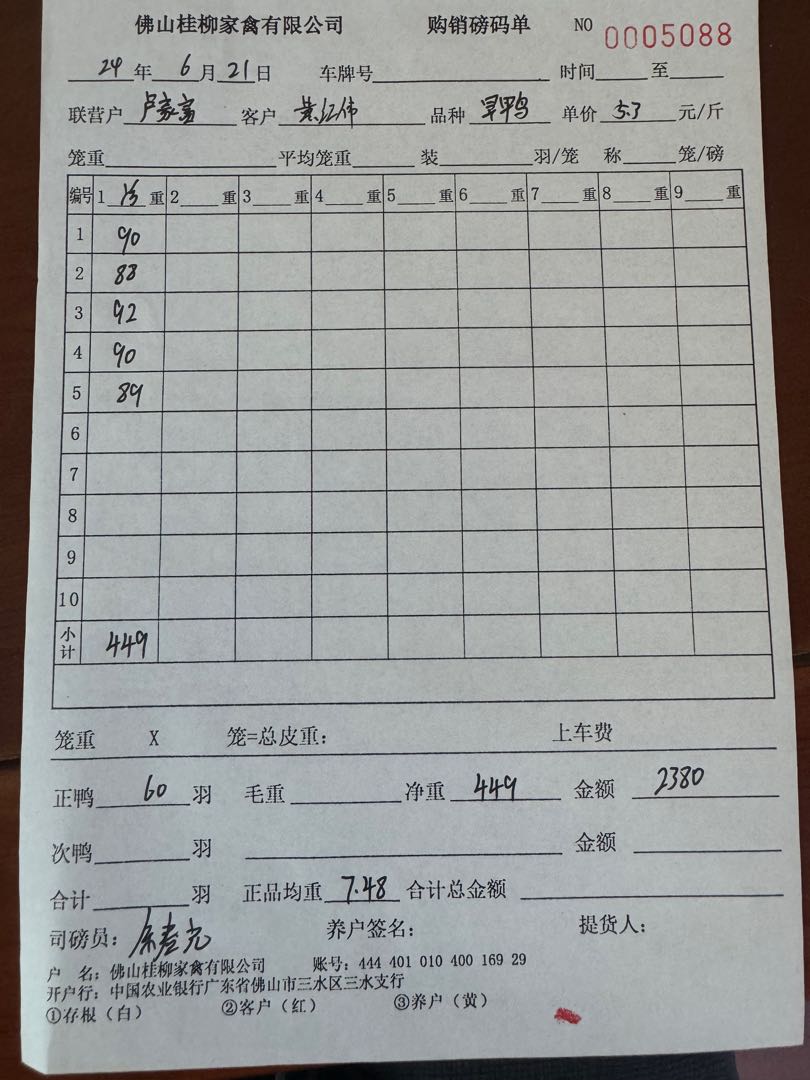 佛山桂柳家禽有限公司 购销磅码单 NO 0005088
24年 6月 21日 车牌号 时间 至
联营户 卢家富 客户 黄江伟 品种 旱甲鸭 单价 5.3 元/斤
笼重 平均笼重 装 羽/笼 称 笼/磅
编号 1 净 重 2 重 3 重 4 重 5 重 6 重 7 重 8 重 9 重
1 90
2 88
3 92
4 90
5 89
6
7
8
9
10
小计 449
笼重 X 笼=总皮重: 上车费
正鸭 60 羽 毛重 净重 449 金额 2380
次鸭 羽 金额
合计 羽 正品均重 7.48 合计总金额
司磅员: 养户签名: 提货人:
户 名: 佛山桂柳家禽有限公司 账号: 444 401 010 400 169 29
开户行: 中国农业银行广东省佛山市三水区三水支行
①存根(白) ②客户(红) ③养户(黄)